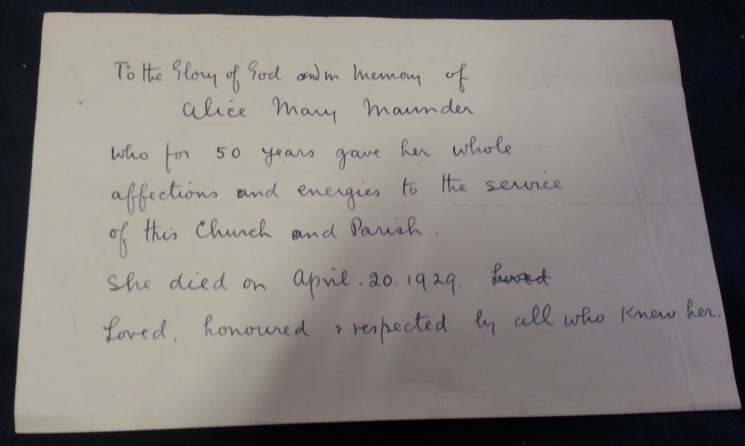 To the Glory of God and in memory of
Alice Mary Maunder
who for 50 years gave her whole
affections and energies to the service
of this Church and Parish.
She died on April. 20. 1929. Loved
Loved, honoured & respected by all who knew her.